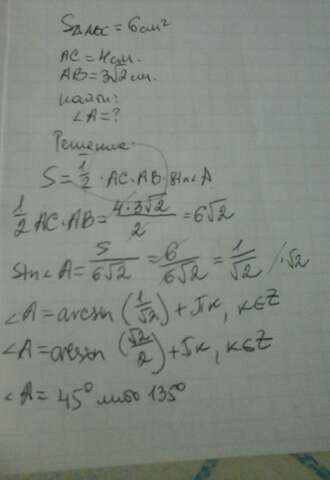 S△ABC = 6см²
AC = 4см.
AB = 3√2 см.
Найти:
∠A = ?
Решение:
S = 1/2 · AC · AB · sin∠A
1/2 AC · AB = 4·3√2/2 = 6√2
sin∠A = S/6√2 = 6/6√2 = 1/√2 /·√2
∠A = arcsin (1/√2) + πк, к∈Z
∠A = arcsin (√2/2) + πк, к∈Z
∠A = 45° либо 135°